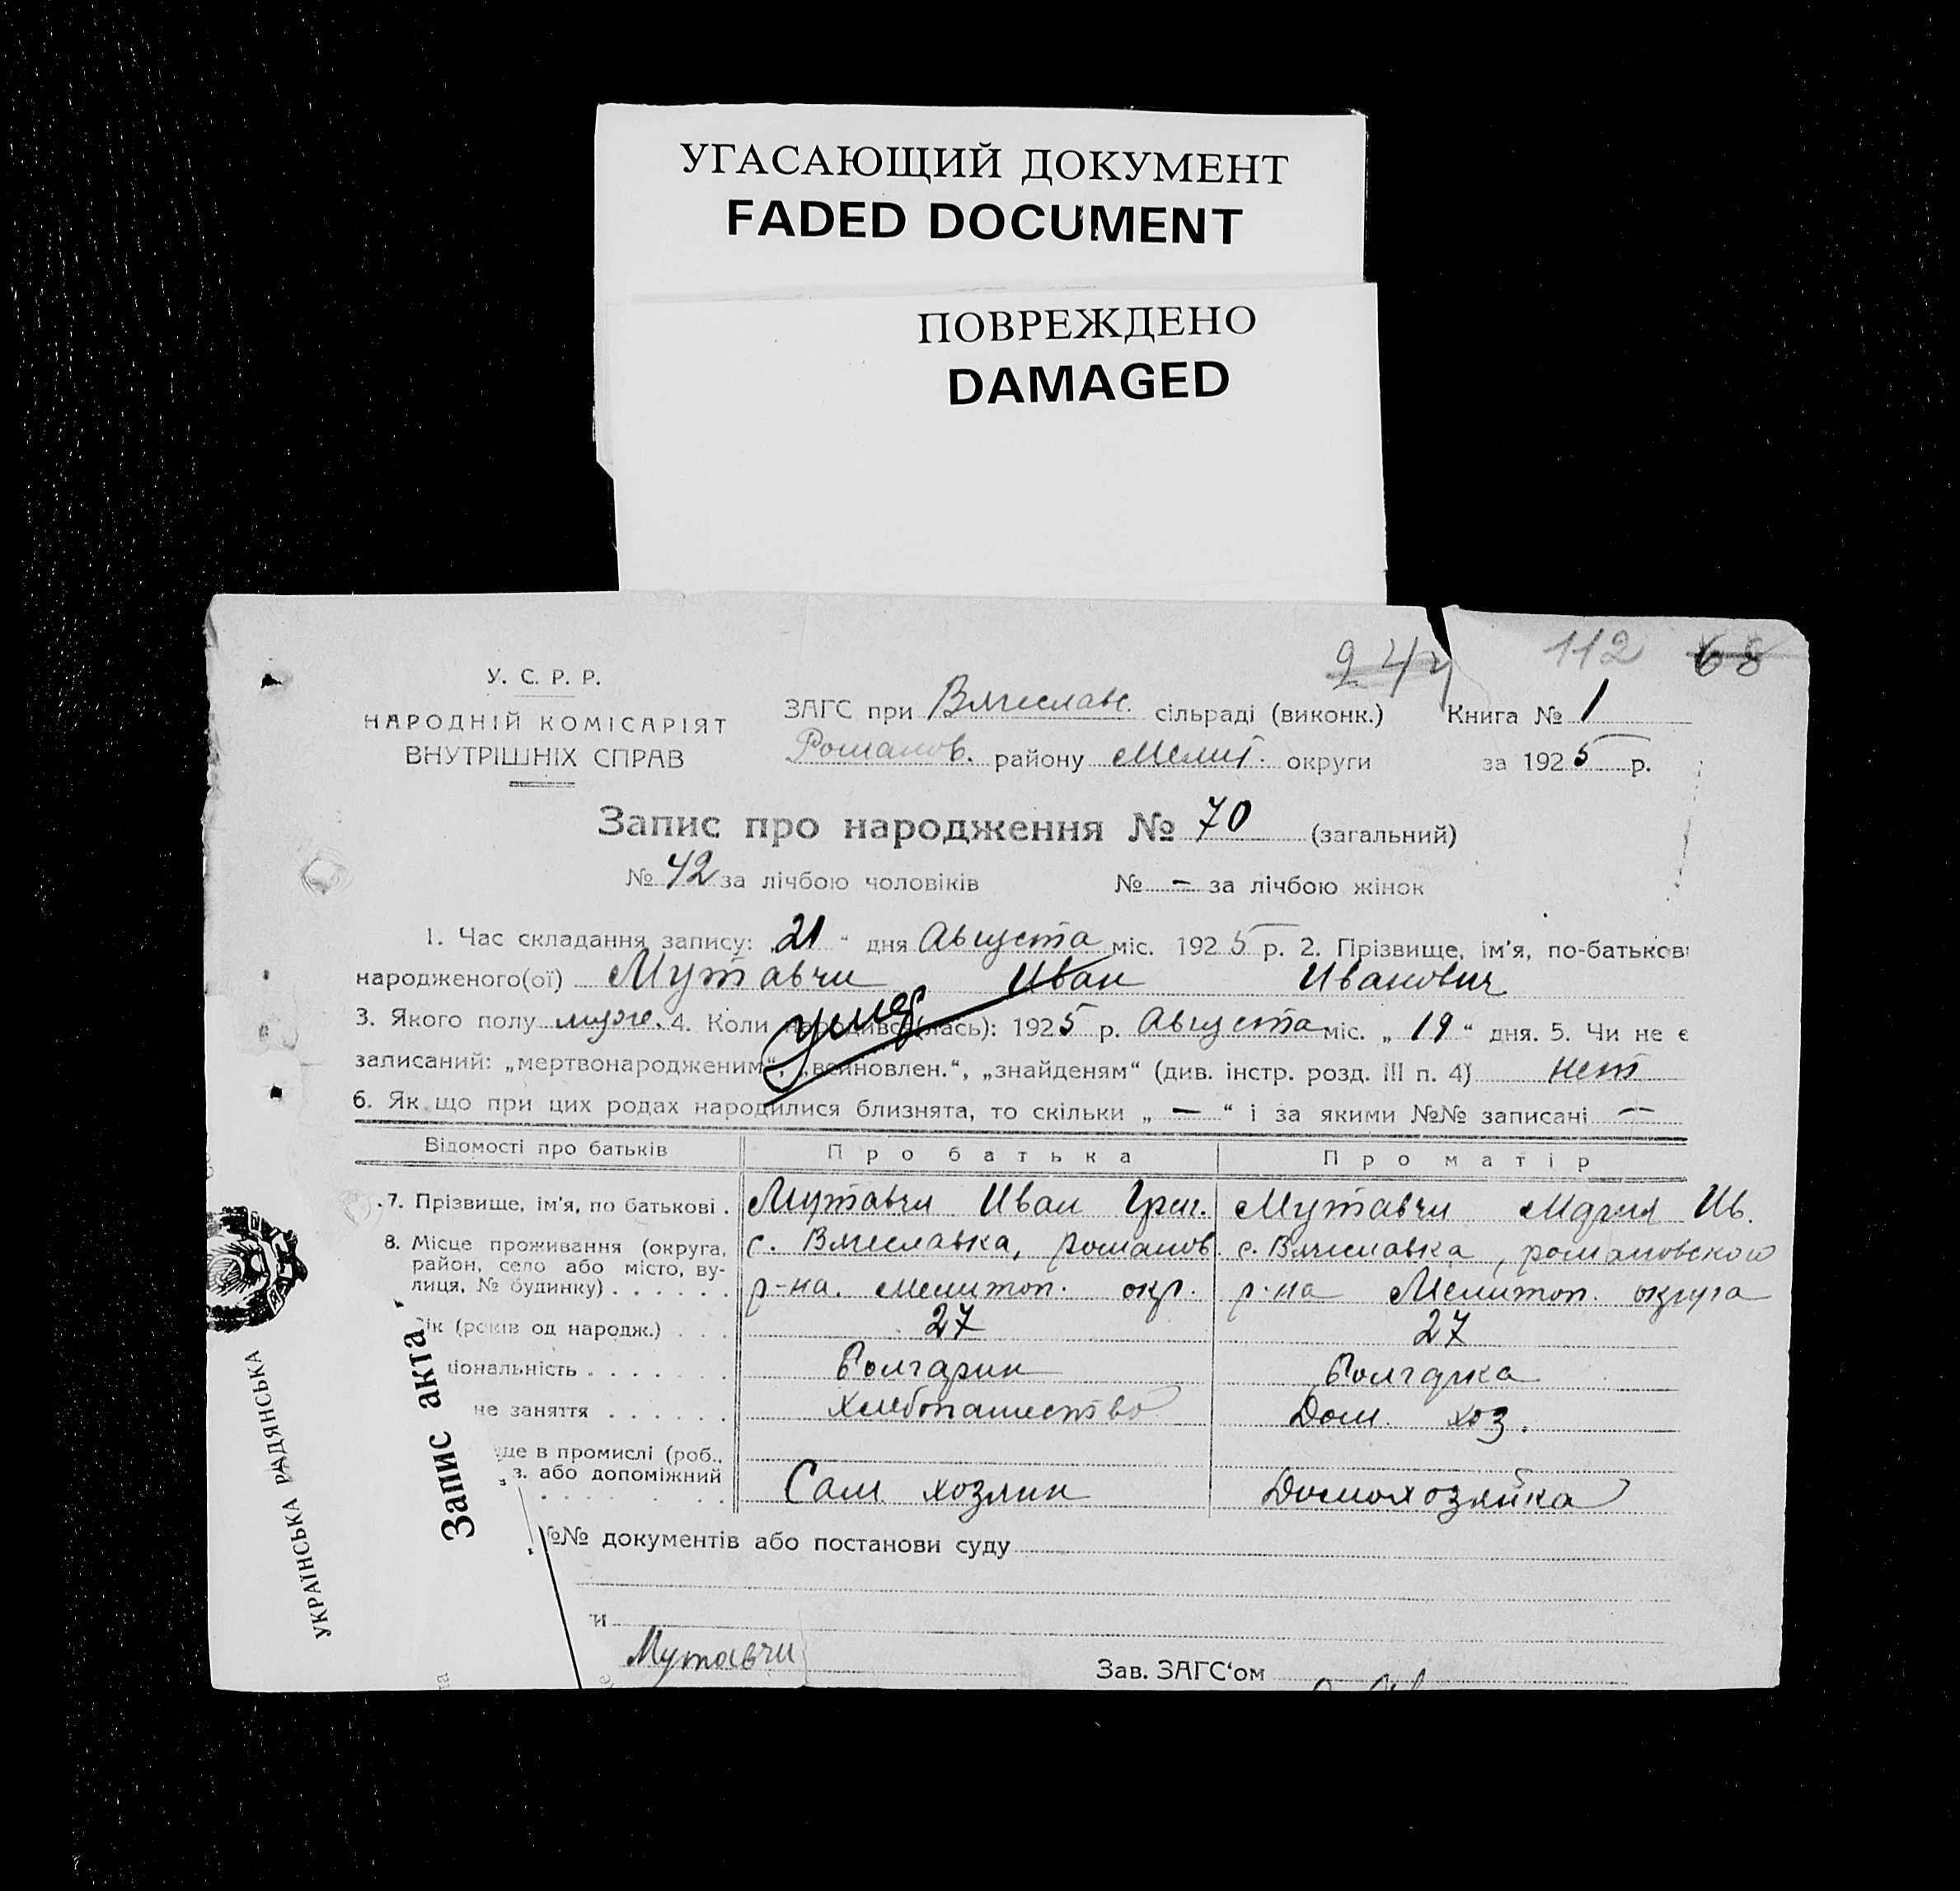 УГАСАЮЩИЙ ДОКУМЕНТ
FADED DOCUMENT
ПОВРЕЖДЕНО
DAMAGED
112 68
У. С. Р. Р.
НАРОДНІЙ КОМІСАРІЯТ
ВНУТРІШНІХ СПРАВ
ЗАГС при Вячеславс. сільраді (виконк.) Книга № 1
Романов. району Мелит. округи за 1925 р.
Запис про народження № 70 (загальний)
№ 42 за лічбою чоловіків № — за лічбою жінок
1. Час складання запису: 21 " дня Августа міс. 1925 р. 2. Прізвище, ім'я, по-батькові
народженого(ої) Мутавчи Иван Иванович
умер
3. Якого полу муж. 4. Коли народився(лась): 1925 р. Августа міс. „ 19 " дня. 5. Чи не є
записаний: „мертвонародженим", „всиновлен.", „знайденям" (див. інстр. розд. III п. 4) нет
6. Як що при цих родах народилися близнята, то скільки „ — " і за якими №№ записані —
Відомості про батьків Про батька Про матір
7. Прізвище, ім'я, по батькові . Мутавчи Иван Григ. Мутавчи Мария Ив.
8. Місце проживання (округа, район, село або місто, вулиця, № будинку) . . . . . . с. Вячеславка, романов. р-на. мелитоп. окр. с. Вячеславка, романовского р-на Мелитоп. округа
ік (років од народж.) . . . 27 27
іональність . . . . . . . Болгарин Болгарка
не заняття . . . . . . Хлебопашество Дом. хоз.
ще в промислі (роб.,
з. або допоміжний Сам хозяин Домохозяйка
№№ документів або постанови суду
и
Мутавчи Зав. ЗАГС'ом
УКРАЇНСЬКА РАДЯНСЬКА
Запис акта